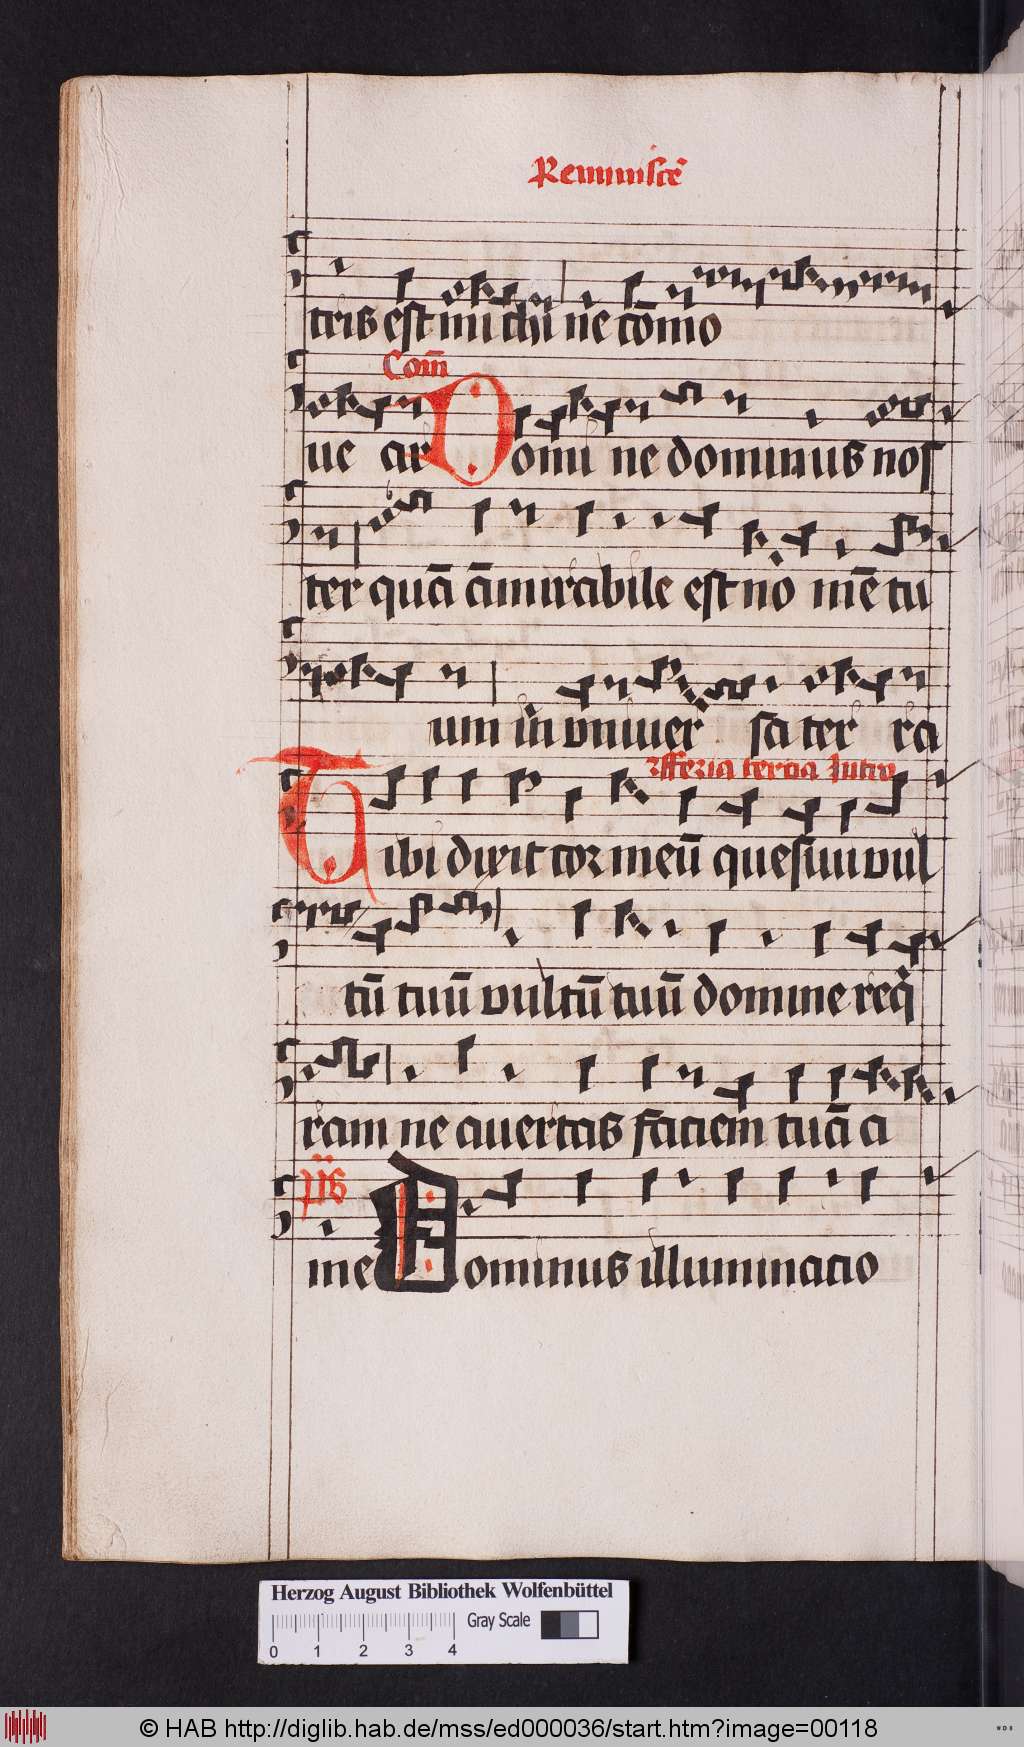 Reminiscē
tris est mi chi ne cōmo
Com̄
ue ar Domi ne dominus nos
ter quā āmirabile est no mē tu
um in vniuer sa ter ra
feria tercia Intro
Tibi dixit cor meū quesiui vul
tū tuū vultū tuū domine req̄
ram ne auertas faciem tuā a
p̄s
me Dominus illuminacio
Herzog August Bibliothek Wolfenbüttel
Gray Scale
0 1 2 3 4
© HAB http://diglib.hab.de/mss/ed000036/start.htm?image=00118